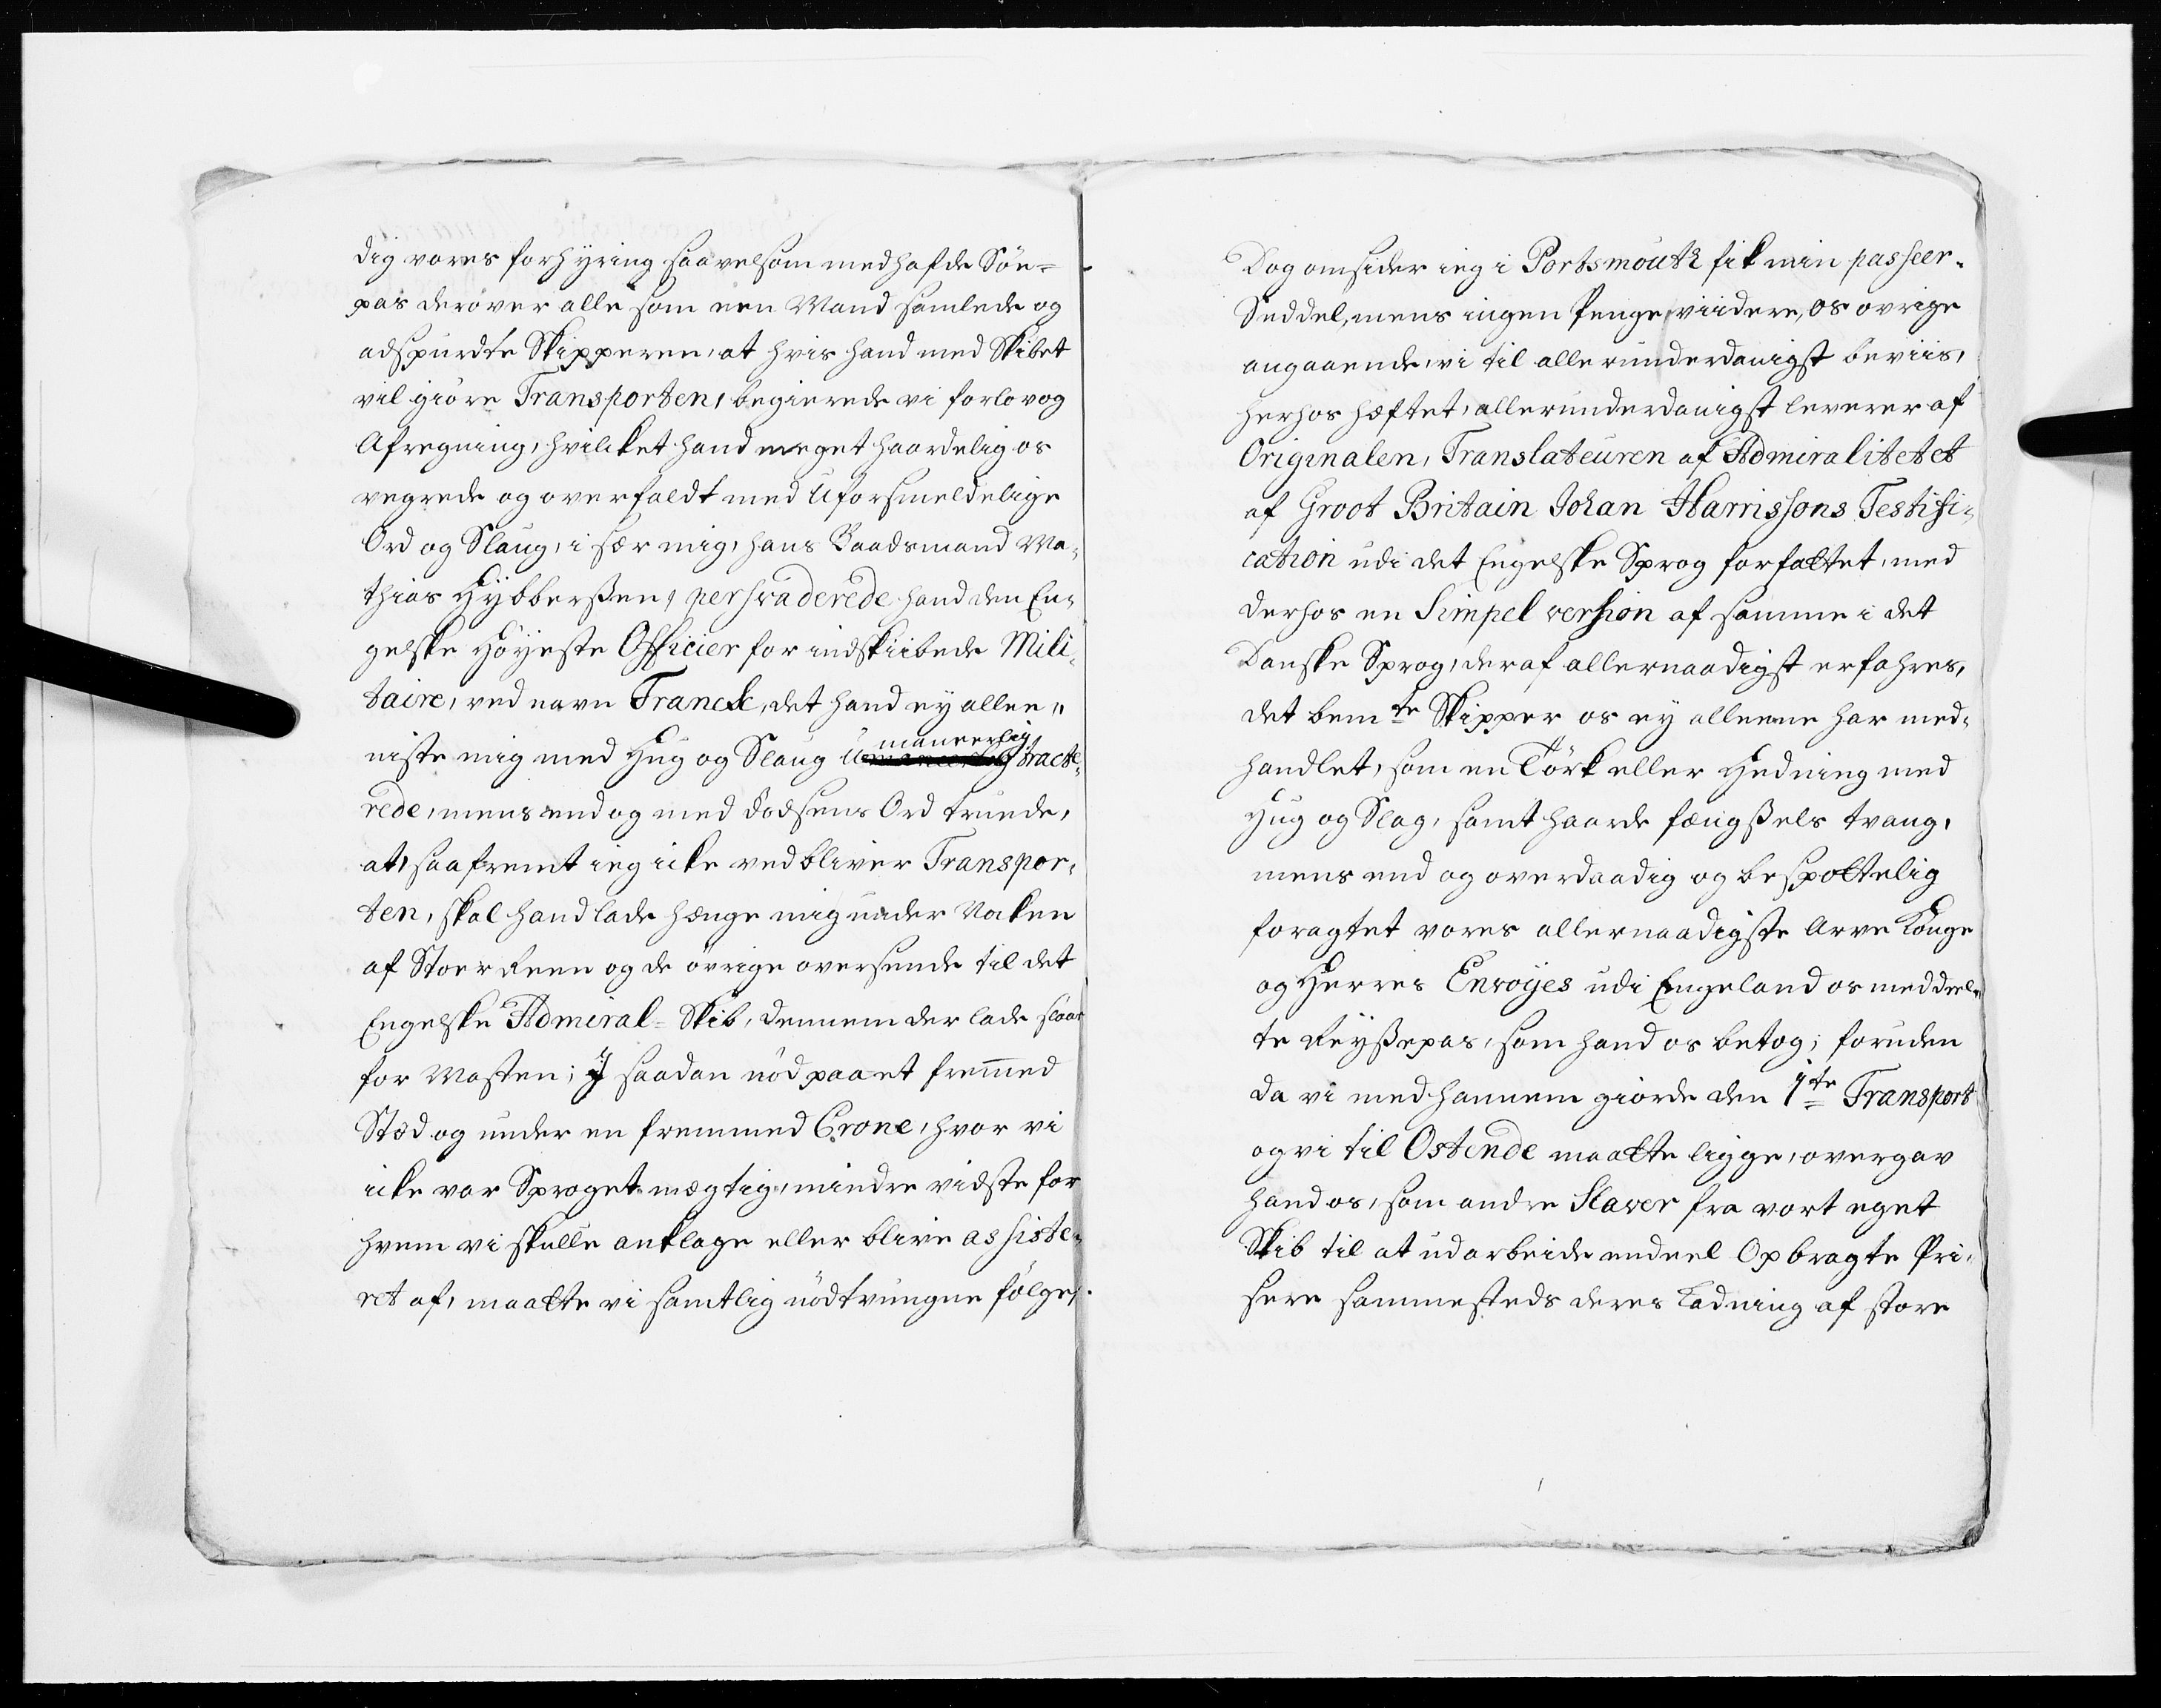 dig vores forhÿring saavelsom medhafde Söe-
pas derover alle som een Mand samlede og
adspurdte Skipperen, at hvis hand med Skibet
vil giöre Transporten, begierede vi forlov og
Afregning, hvilcket hand meget haardelig os
vegrede og overfaldt med Uforsmeldelige
Ord og Slaug, i sær mig, hans Baadsmand Ma-
thias Hÿbberßen, persvaderede hand den En-
gelske Höÿeste Officier for indskibede Mili-
taire, ved navn Franck, det hand eÿ allee-
niste mig med Hug og Slaug U maneerlig tracte-
rede, mens endog med dodsens Ord truede,
at, saafremt ieg icke ved bliver Transpor-
ten, skal hand lade hænge mig under Nocken
af Stoer Reen og de övrige oversende til det
Engelske Admiral-Skib, dennem der lade slaae
for Masten; J saadan nöd paa et fremmed
Stæd og under en fremmed Crone, hvor vi
icke var Sproget mægtig, mindre vidste for
hvem vi skulle anklage eller blive assiste-
ret af, maatte vi samtlig nödtvungne fölge,
Dog omsider ieg i Portsmouth fik min passeer-
Seddel, mens ingen Penge, viidere, os ovrige
angaaende, vi til allerunderdanigst beviis,
herhos hæftet, allerunderdanigst leverer af
Originalen, Translateuren af Admiralitetet
af Groot Britain Johan Harrissons Testifi-
cation udi det Engelske Sprog forfattet, med
derhos en Simpel version af samme i det
Danske Sprog, deraf allernaadigst erfahres,
det bemte Skipper os eÿ alleene har med-
handlet, som en Törk eller Hedning med
Hug og Slag, samt haarde fængßels tvang,
mens end og overdaadig og bespottelig
foragtet vores allernaadigste Arve Konge
og Herres Envoÿes udi Engeland os meddeel-
te Reÿßepas, som hand os betog; foruden
da vi med hannem giorde den 1te Transport
og vi til Ostende maatte ligge, overgav
hand os, som andre Slaver fra vort eget
Skib til at udarbeide endeel Opbragte Pri-
sere sammesteds deres Ladning af store